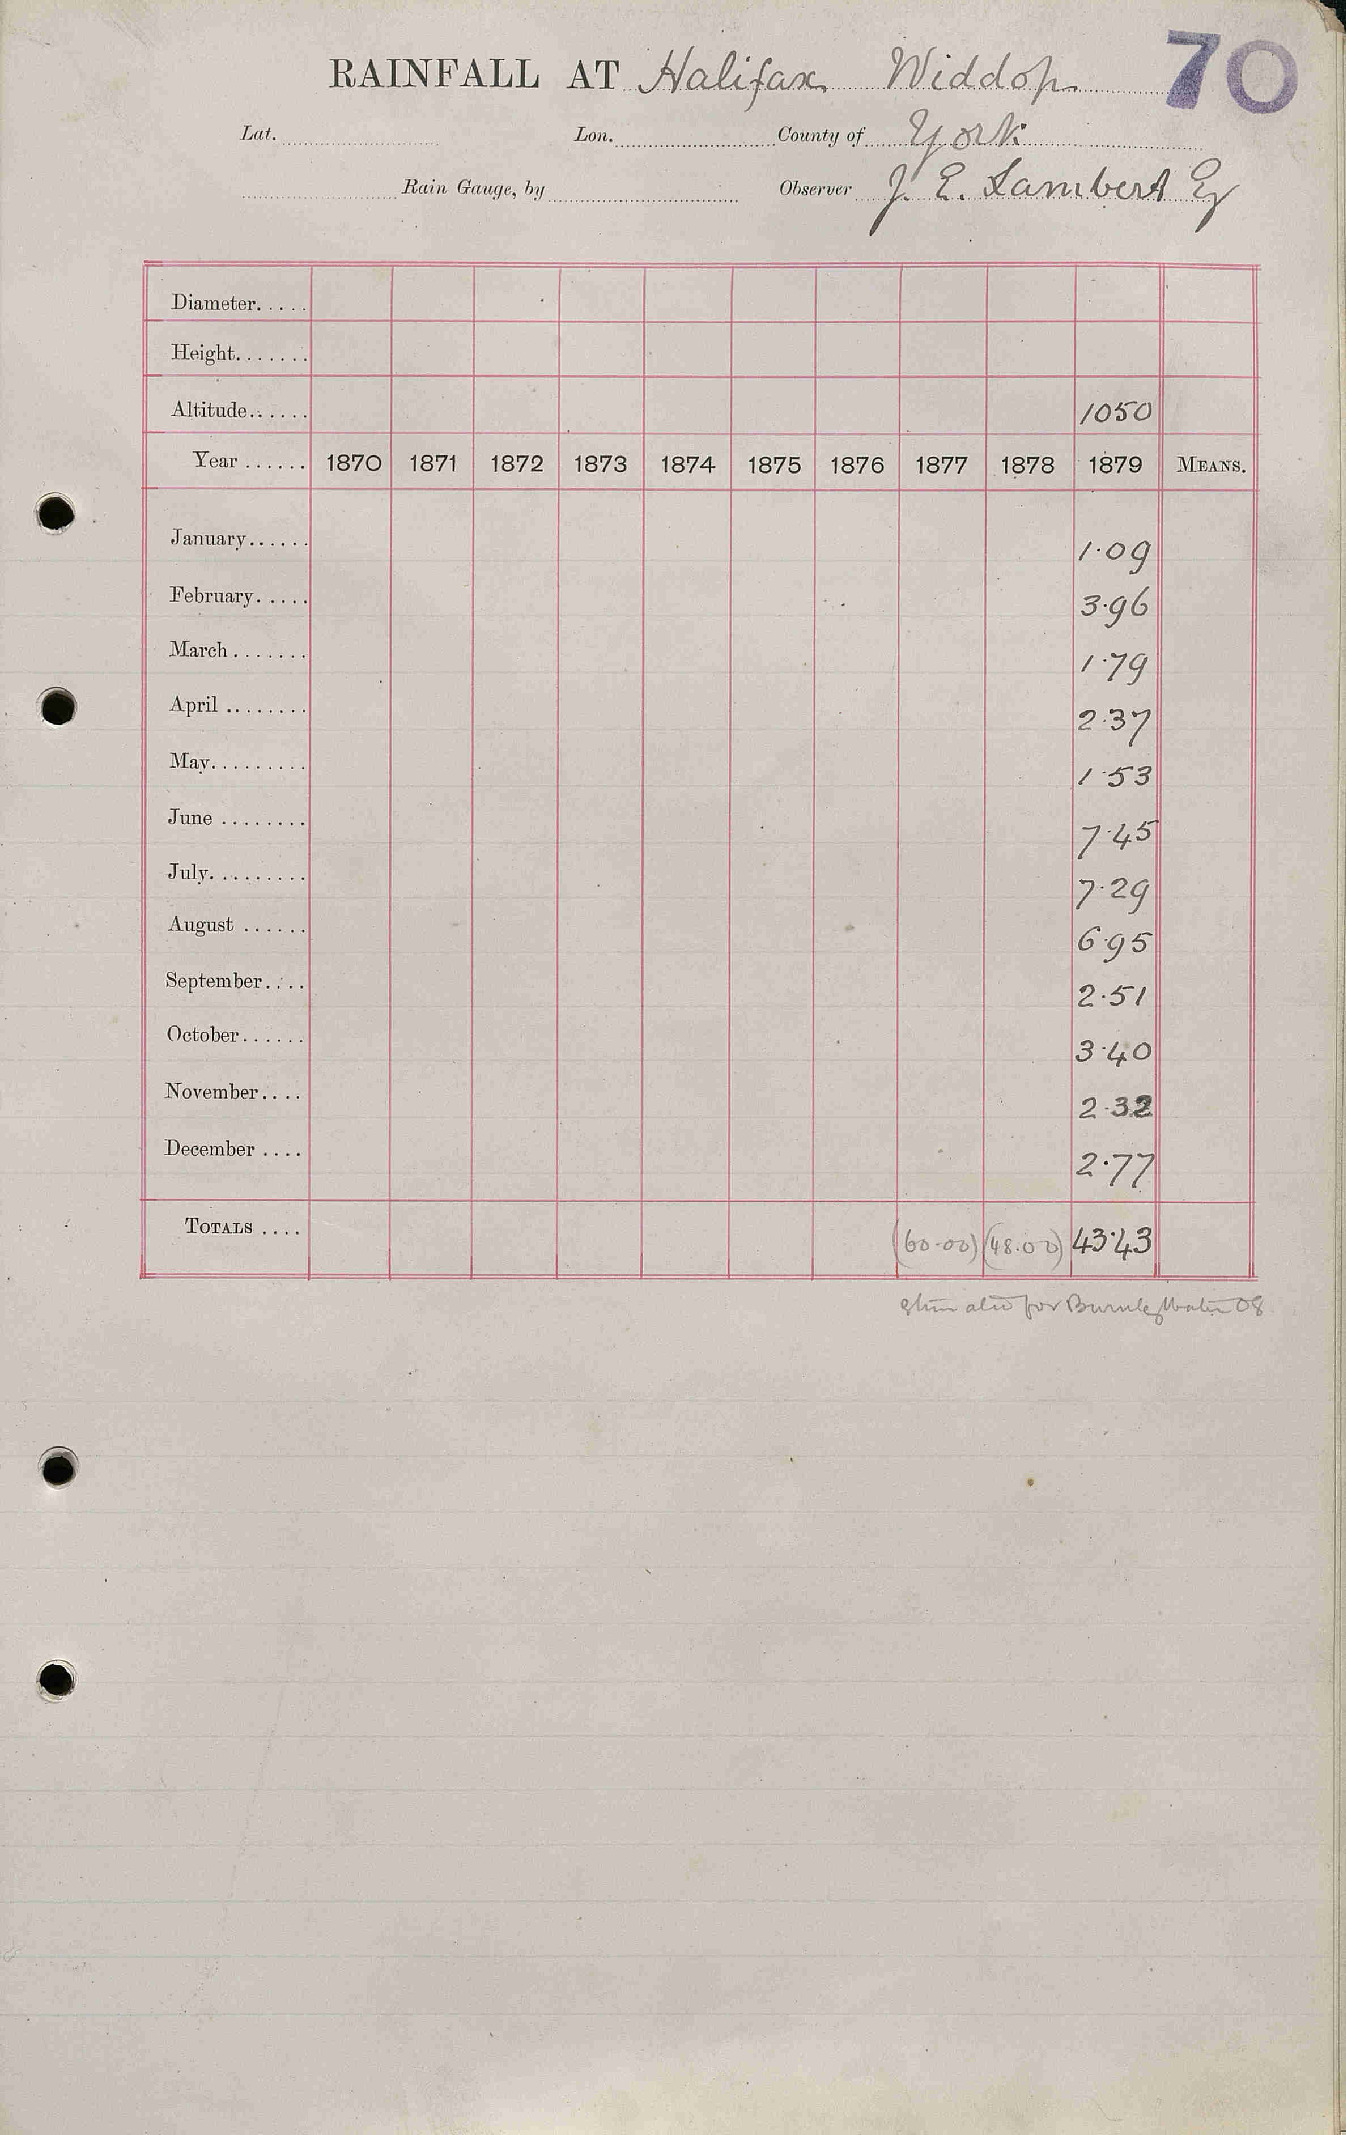 70
RAINFALL AT Halifax, Widdop.
Lat. Lon. County of York
Rain Gauge, by Observer J. E. Lambert Esq
Diameter.....
Height.......
Altitude...... 1050
Year ...... 1870 1871 1872 1873 1874 1875 1876 1877 1878 1879 MEANS.
January...... 1.09
February..... 3.96
March....... 1.79
April ........ 2.37
May......... 1.53
June ........ 7.45
July......... 7.29
August ...... 6.95
September.... 2.51
October...... 3.40
November.... 2.32
December .... 2.77
TOTALS .... (60.00) (48.00) 43.43
for Burnley Water 08